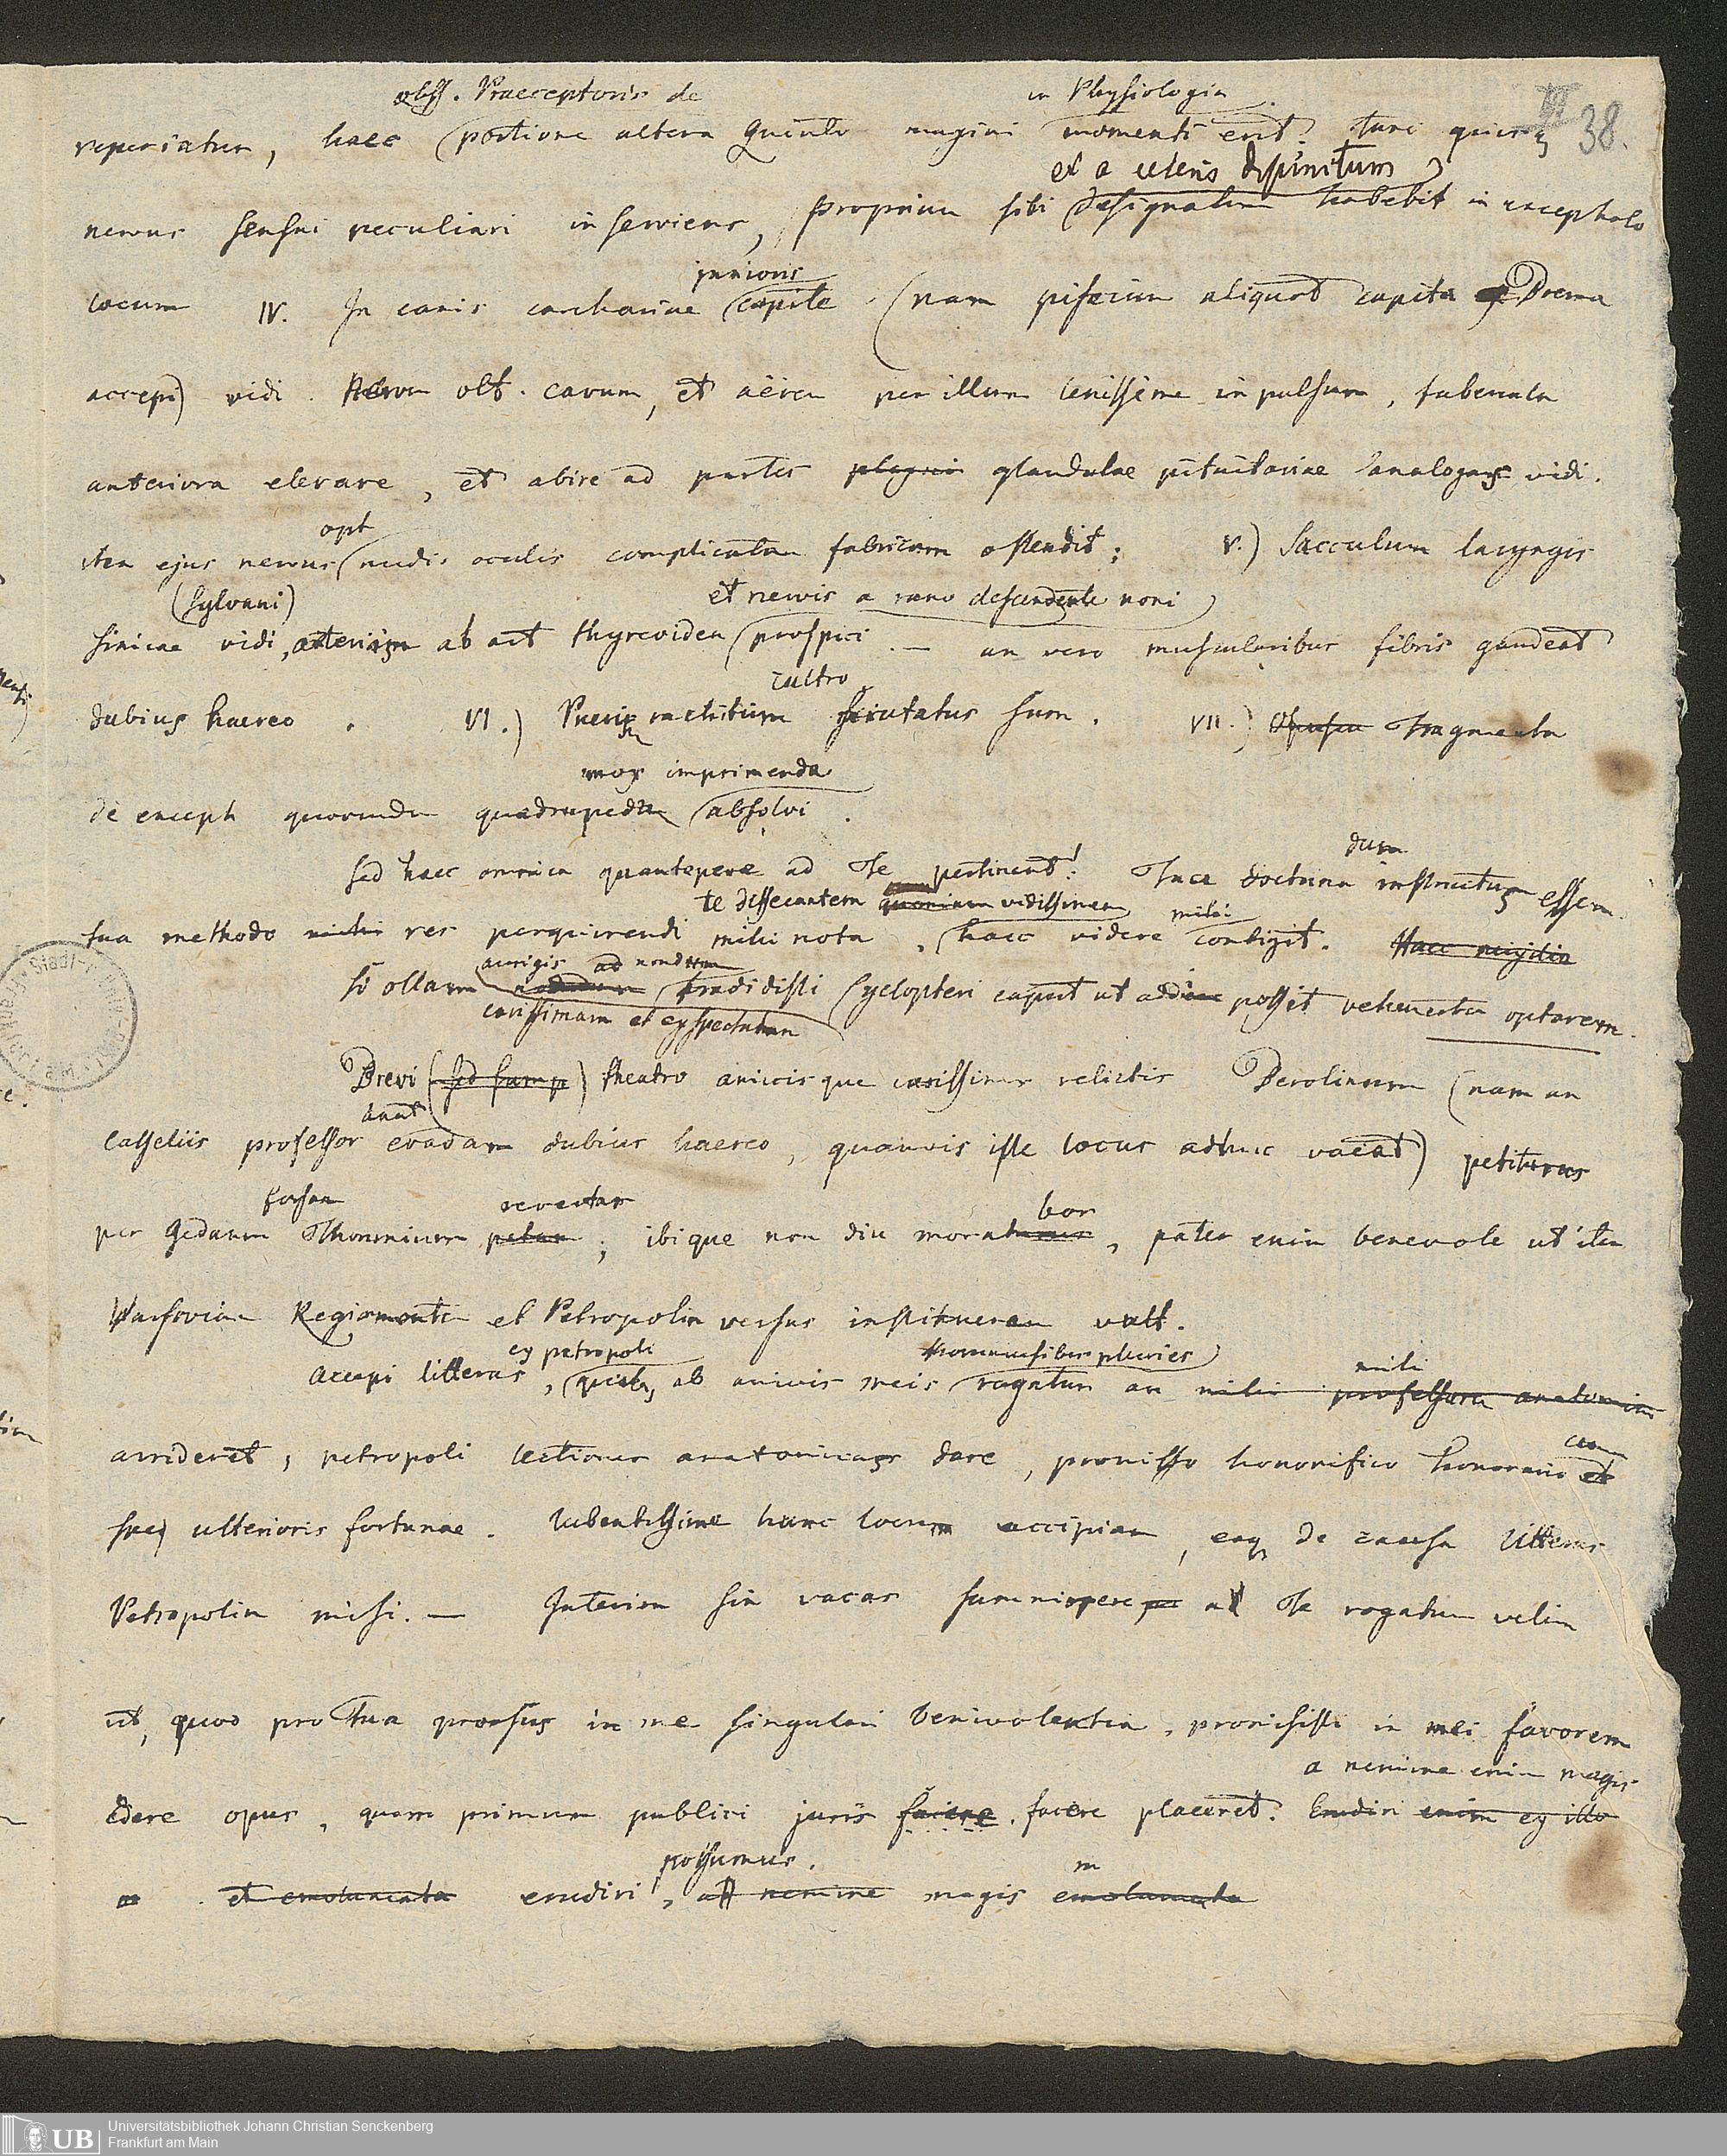 38.
obss. Praeceptoris de in Physiologia
reperiatur, haec portione altera Quinti magni momenti erit? tunc quivis
et a ceteris disjunctum
nervus sensui peculiari inserviens, proprium sibi designatum habebit in encephalo
junioris
locum IV. In canis carchariae capite (nam piscium aliquot capita Brema
accepi) vidi nervum olf. cavum, et aërem per illum lenissime inpulsum, tubercula
anteriora elevare, et abire ad partes glandulae pituitariae analogas vidi.
opt
item ejus nervus nudis oculis complicatam fabricam ostendit; V.) Sacculum laryngis
(Sylvani) et nervis a ramo descendente noni
simiae vidi, arteriam ab art thyreoidea prospici — an vero muscularibus fibris gaudeat
cultro
dubius haereo. VI.) Puerum rachiticum scrutatus sum. VII.) Fragmenta
mox imprimenda
de enceph quorundam quadrupedum absolvi.
dum
Sed haec omnia quantopere ad Te pertinent! Tua doctrina instructus essem
te dissecantem vidissem mihi
tua methodo mihi res perquirendi mihi nota, haec videre contigit. Haec
aurigis nondum
Si ollam tradidisti Cyclopteri caput ut addi possit vehementer optarem.
carissimam et exspectatam
Brevi (sed) theatro amicisque carissimis relictis Berolinum (nam an
anat
Casseliis professor evadam dubius haereo, quamvis iste locus adhuc vacat) petiturus
forsan revertar bor
per Gedanum Thorunium petam; ibique non diu moraturus, pater enim benevole ut iter
Varsoviam Regiomontem et Petropolin versus instituerem vult.
ex petropoli pluries mihi
Accepi litteras, quibus ab amicis meis rogatur an mihi professura anatomiae
cum
arrideret, petropoli lectiones anatomicas dare, promisso honorifico honorario et
spe ulterioris fortunae. Lubentissime hunc locum accipiam, eaq de causa litteras
Petropolin misi. — Interim sin vacas summopere a Te rogatum velim
ut, quod pro Tua prorsus in me singulari benivolentia, promisisti in mei favorem
a nemine enim magis
edere opus, quam primum publici juris facere. facere placeret. Erudiri enim ex illo
possumus. m
et emolumenta erudiri, a nemine magis emolumenta
Universitätsbibliothek Johann Christian Senckenberg
UB Frankfurt am Main